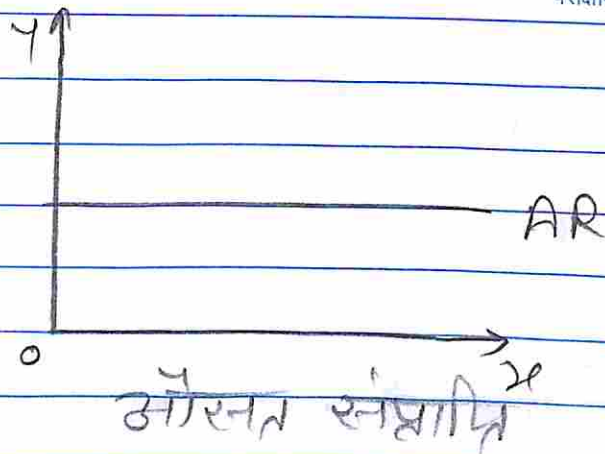 Y
AR
O
x
औसत संप्राप्ति